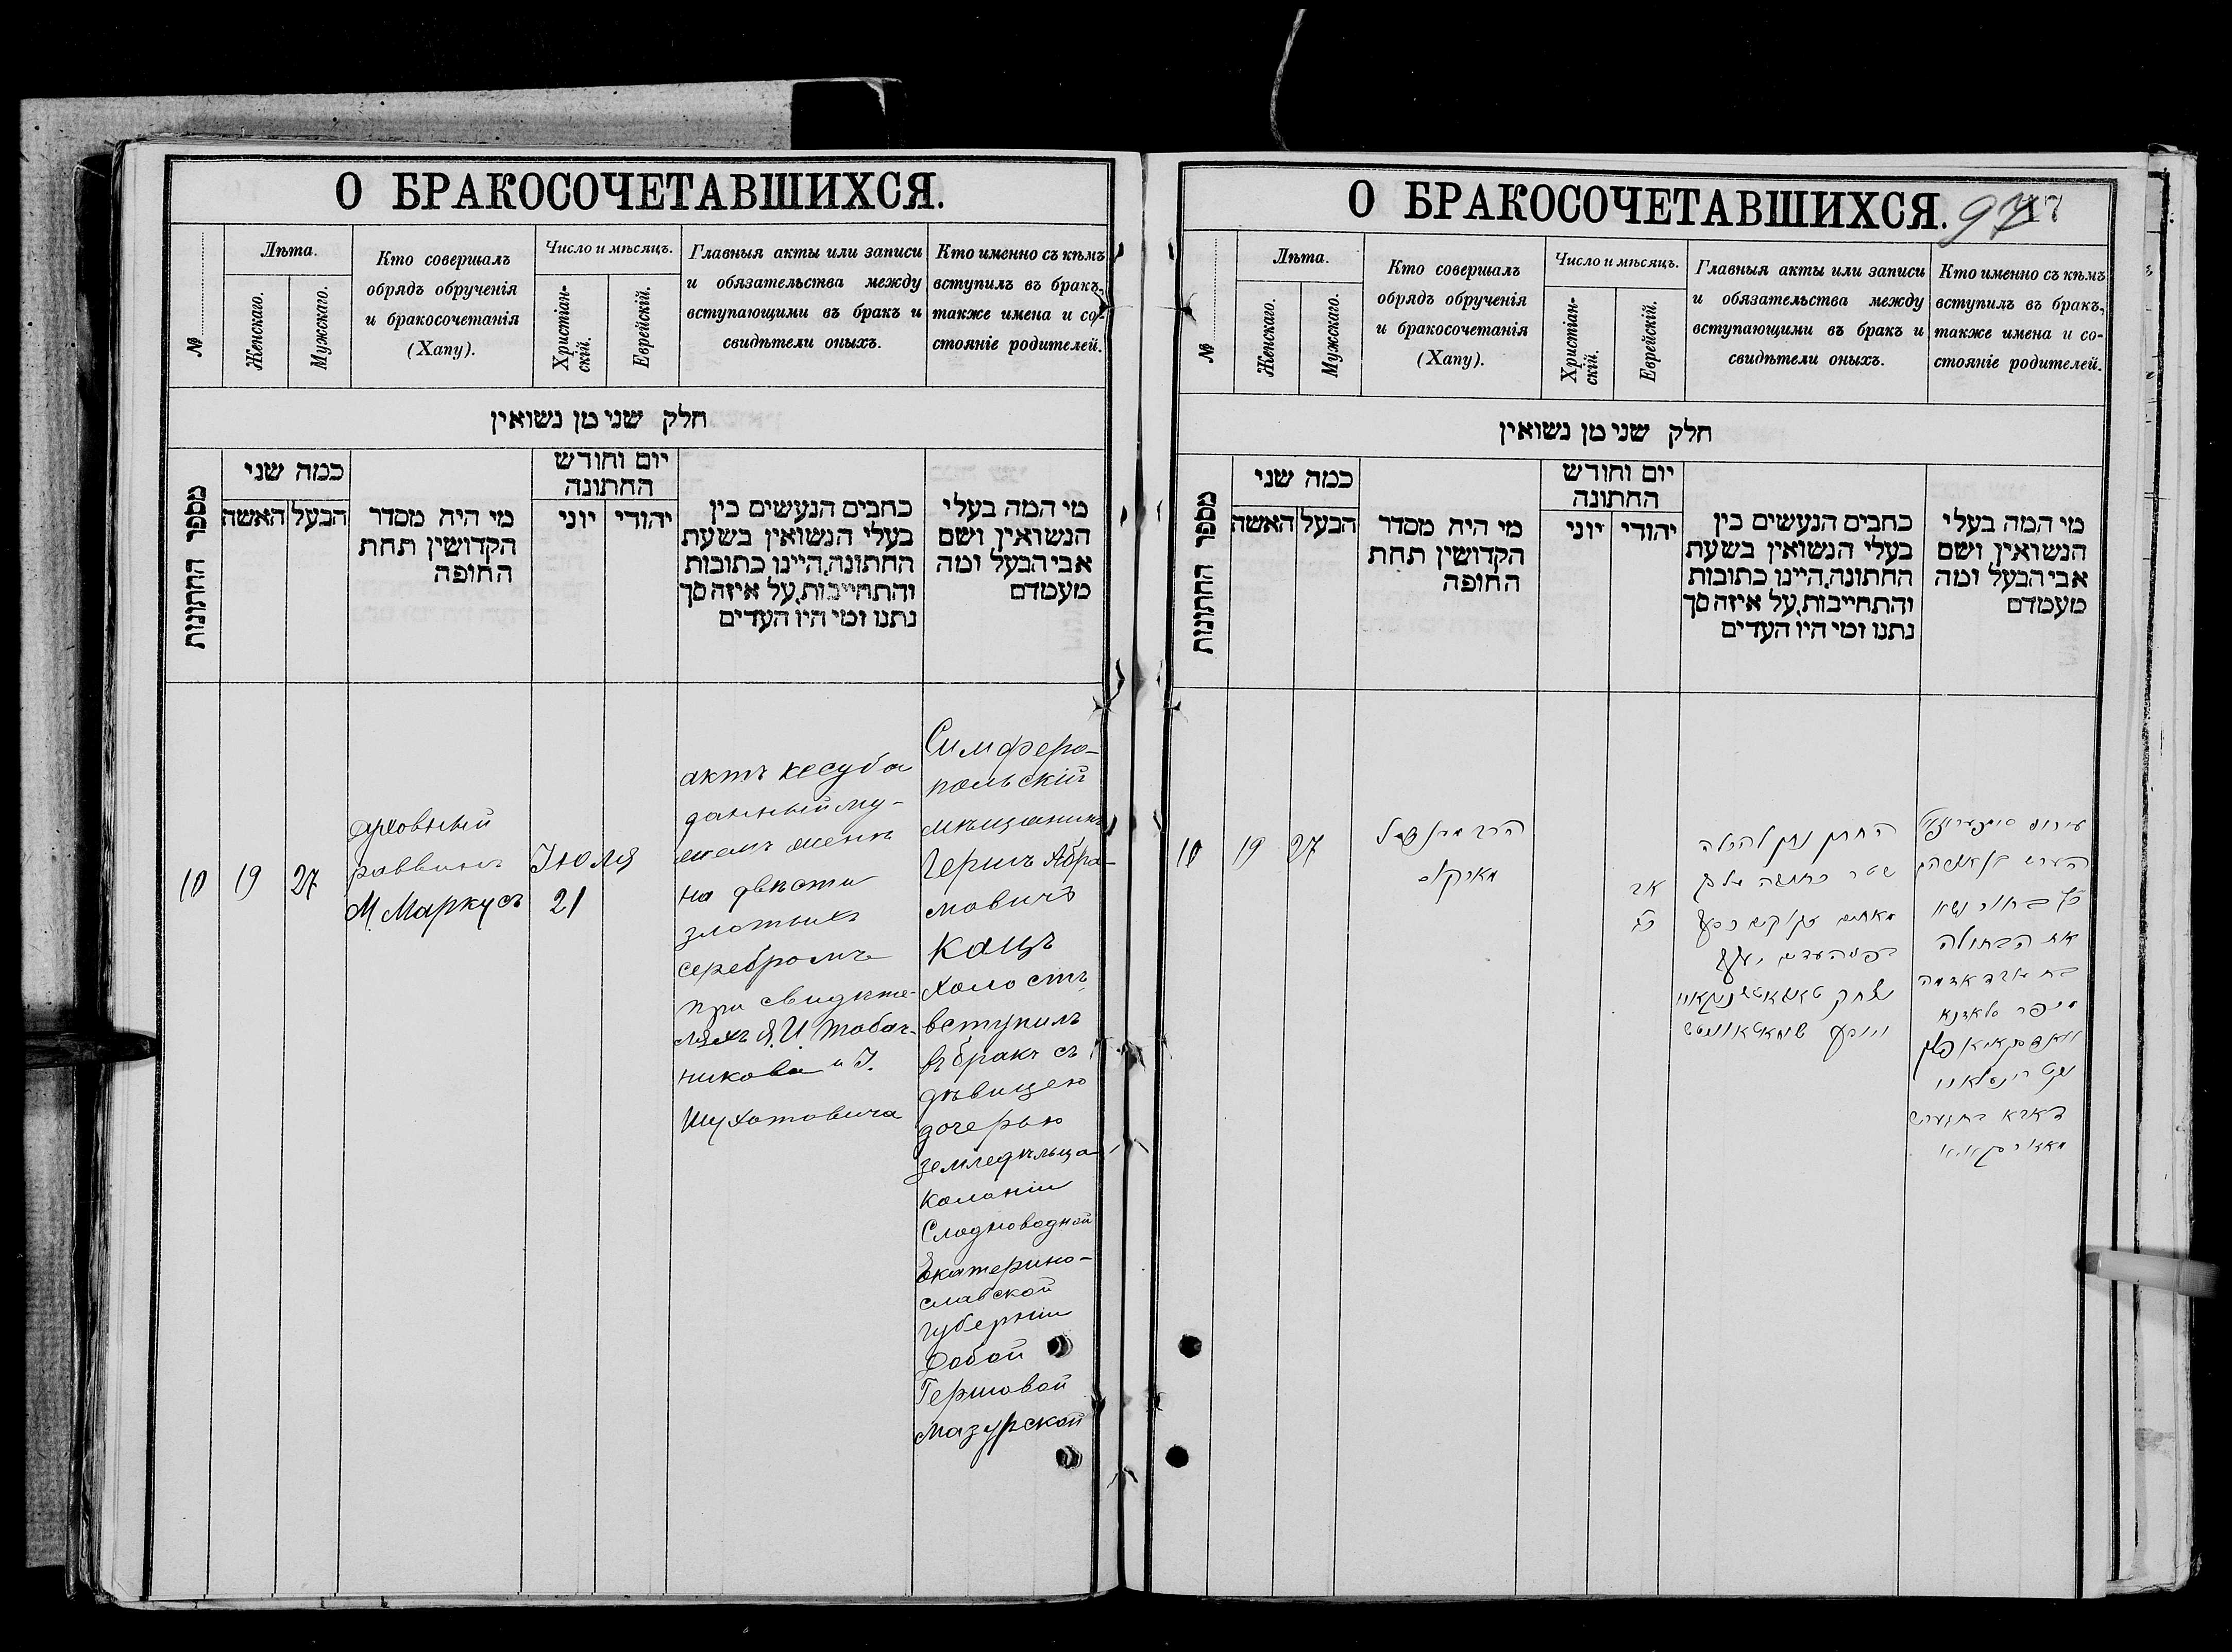 О БРАКОСОЧЕТАВШИХСЯ.
№
Лѣта.
Женскаго.
Мужскаго.
Кто совершалъ
обрядъ обрученія
и бракосочетанія
(Хапу).
Число и мѣсяцъ.
Христіан-
скій.
Еврейскій.
Главныя акты или записи
и обязательства между
вступающими въ бракъ и
свидѣтели оныхъ.
Кто именно съ кѣмъ
вступилъ въ бракъ,
также имена и со-
стояніе родителей.
חלק שני מן נשואין
מספר החתונות
כמה שני
האשה
הבעל
מי היה מסדר
הקדושין תחת
החופה
יום וחודש
החתונה
יוני
יהודי
כתבים הנעשים בין
בעלי הנשואין בשעת
החתונה, היינו כתובות
והתחייבות, על איזה סך
נתנו ומי היו העדים
מי המה בעלי
הנשואין ושם
אבי הבעל ומה
מעמדם
10
19
27
Духовный
раввинъ
М. Маркусъ
Июля
21
актъ кесуба
данный му-
жемъ женѣ
на двѣсти
злотыхъ
серебромъ
при свидѣте-
ляхъ Я. И Табач-
никова и І.
Шухатовича
Симферо-
польскій
мѣщанинъ
Гершъ Абра-
мовичъ
Кацъ
холостъ
вступилъ
въ бракъ съ
дѣвицею
дочерью
земледѣльца
колоніи
Сладководной
Екатерино-
славской
губерніи
Добой
Гершовой
Мазурской
О БРАКОСОЧЕТАВШИХСЯ.
97
17
№
Лѣта.
Женскаго.
Мужскаго.
Кто совершалъ
обрядъ обрученія
и бракосочетанія
(Хапу).
Число и мѣсяцъ.
Христіан-
скій.
Еврейскій.
Главныя акты или записи
и обязательства между
вступающими въ бракъ и
свидѣтели оныхъ.
Кто именно съ кѣмъ
вступилъ въ бракъ,
также имена и со-
стояніе родителей.
חלק שני מן נשואין
מספר החתונות
כמה שני
האשה
הבעל
מי היה מסדר
הקדושין תחת
החופה
יום וחודש
החתונה
יוני
יהודי
כתבים הנעשים בין
בעלי הנשואין בשעת
החתונה, היינו כתובות
והתחייבות, על איזה סך
נתנו ומי היו העדים
מי המה בעלי
הנשואין ושם
אבי הבעל ומה
מעמדם
10
19
27
הרב
מארקוס
אב
החתן נתן להכלה
שטר כתובה על סך
מאתים זקוקים כסף
יצחק
בחור נשא
את הבתולה